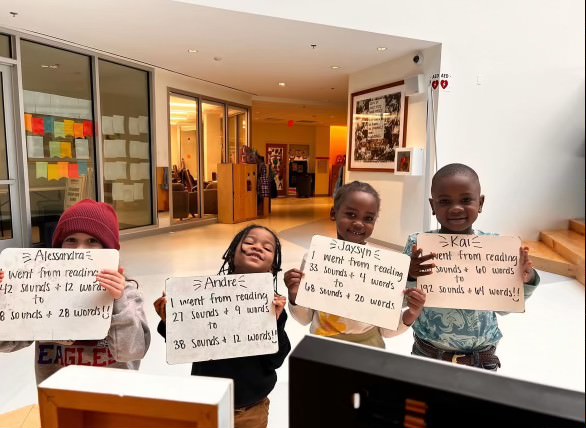 Alessandra
I went from reading
42 sounds + 12 words
to
8 sounds + 28 words!!
EAGLES
Andre
I went from reading
21 sounds + 9 words
to
38 sounds + 12 words!
Jaxsyn
I went from reading
33 sounds + 4 words
to
68 sounds + 20 words
Kai
I went from reading
sounds + 60 words
to
192 sounds + 64 words!!
AED AED